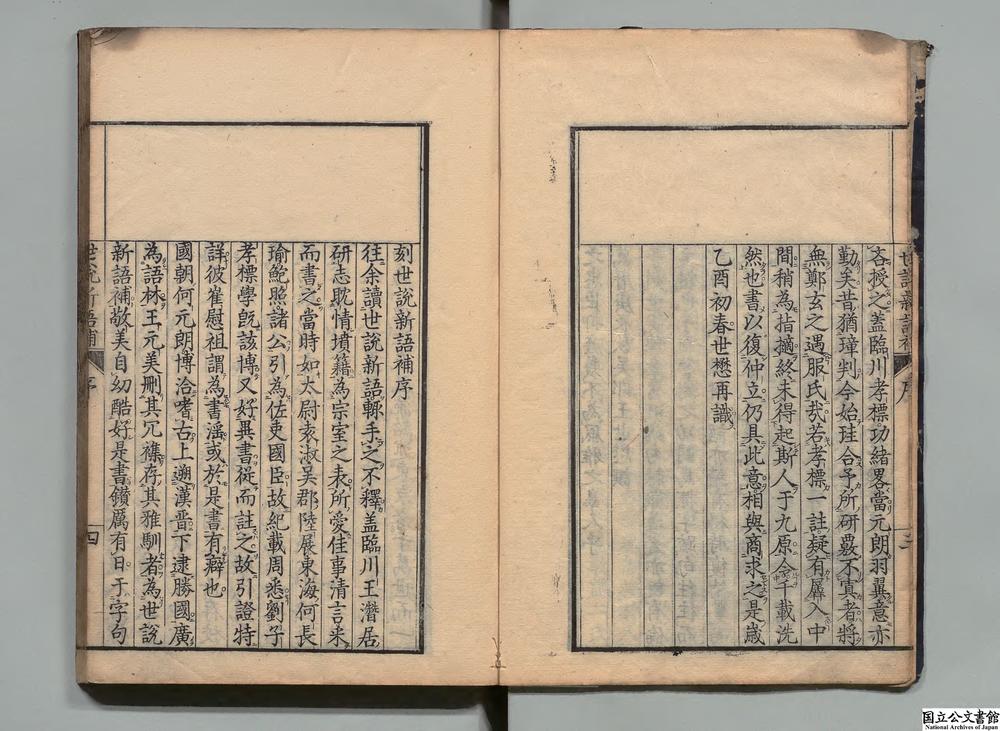 吝授之蓋臨川孝標功緒畧當元朗羽翼意亦
勤矣昔猶璋判今始珪合予所研覈不寘者將
無鄭玄之遇服氏哉若孝標一註疑有孱入中
間稍為指擿終未得起斯人于九原令千載洗
然也書以復仲立仍具此意相與商求之是歳
乙酉初春世懋再識
刻世說新語補序
往余讀世說新語輙手之不釋盖臨川王潛居
研志眈情墳籍為宗室之表所愛佳事清言来
而書之當時如太尉袁淑吴郡陸展東海何長
瑜鮑照諸公引為佐吏國臣故紀載周悉劉子
孝標學旣該博又好異書從而註之故引證特
詳彼崔慰祖謂為書滛或於是書有癖也
國朝何元朗博洽嗜古上遡漢晋下逮勝國廣
為語林王元美删其冗襍存其雅馴者為世說
新語補敬美自幼酷好是書鑚厲有日于字句
世說新語補
序
四
国立公文書館
National Archives of Japan